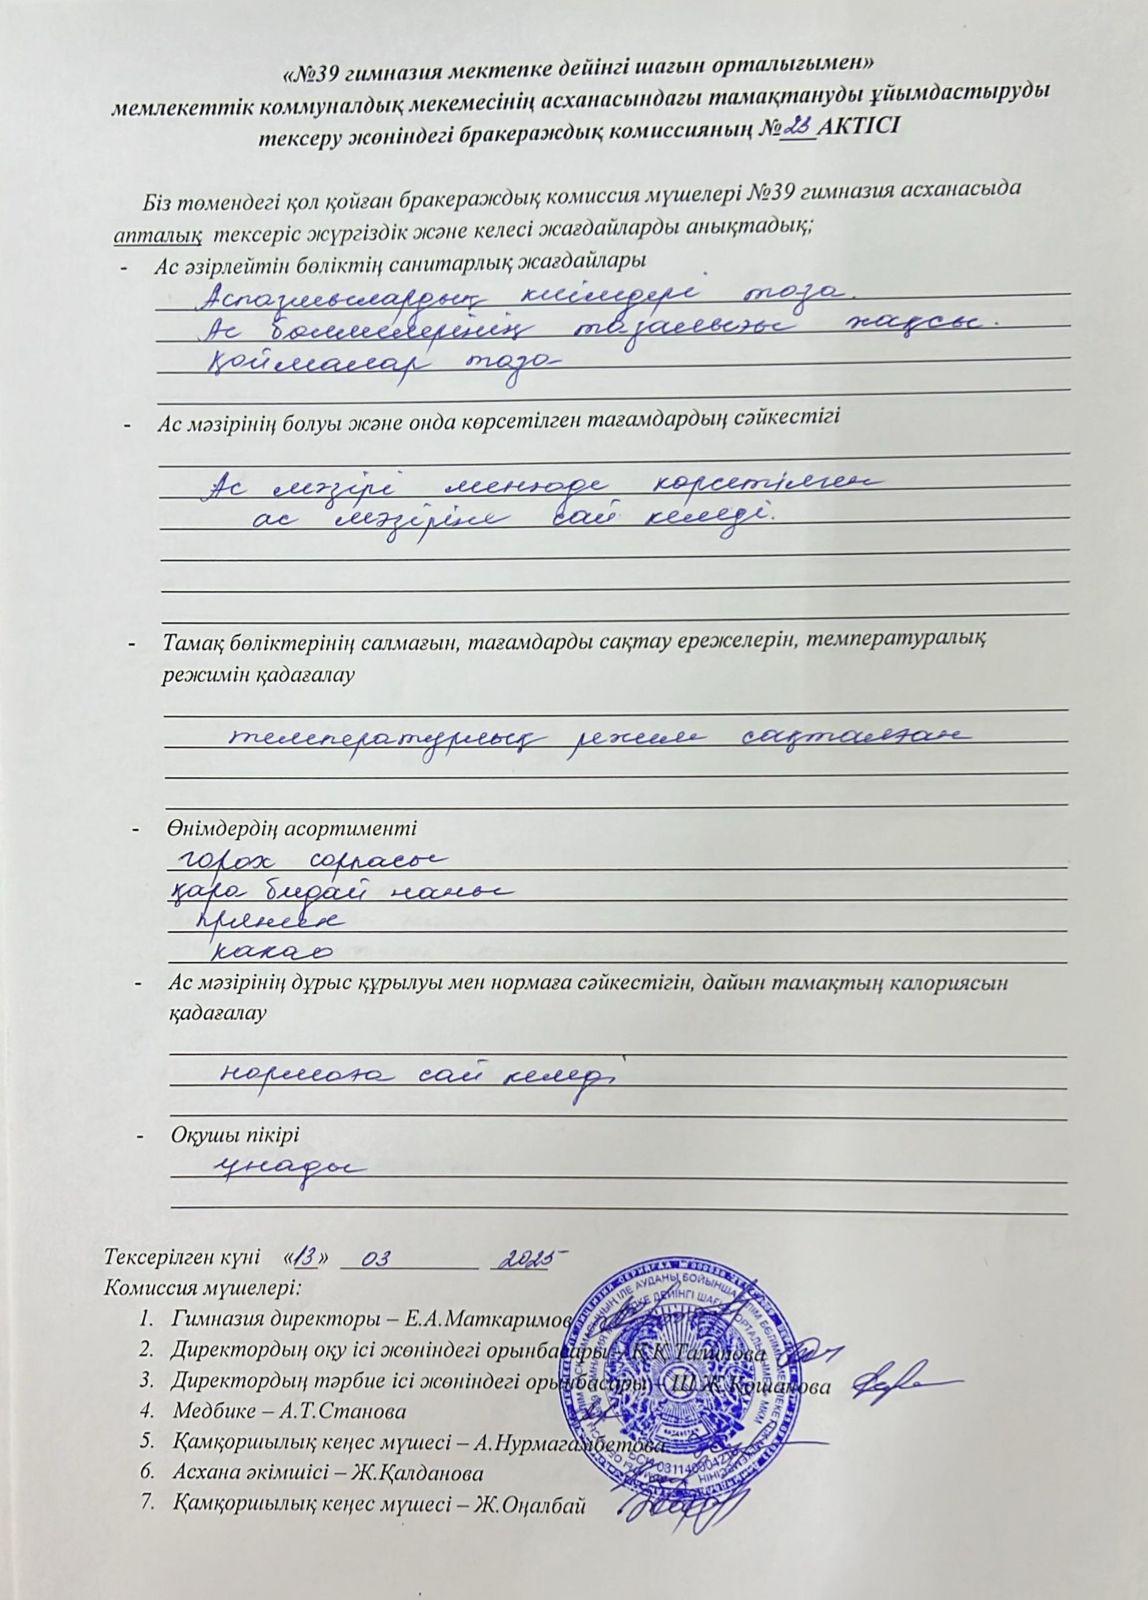 «№39 гимназия мектепке дейінгі шағын орталығымен»
мемлекеттік коммуналдық мекемесінің асханасындағы тамақтануды ұйымдастыруды
тексеру жөніндегі бракераждық комиссияның №23 АКТІСІ
Біз төмендегі қол қойған бракераждық комиссия мүшелері №39 гимназия асханасыда
апталық тексеріс жүргіздік және келесі жағдайларды анықтадық;
- Ас әзірлейтін бөліктің санитарлық жағдайлары
Аспазшылардың киімдері таза.
Ас бөлмелерінің тазалығы жақсы.
Қоймалар таза
- Ас мәзірінің болуы және онда көрсетілген тағамдардың сәйкестігі
Ас мәзірі менюде көрсетілген
ас мәзіріне сай келеді.
- Тамақ бөліктерінің салмағын, тағамдарды сақтау ережелерін, температуралық
режимін қадағалау
температурлық режим сақталған
- Өнімдердің асортименті
горох сорпасы
қара бидай наны
пряник
какао
- Ас мәзірінің дұрыс құрылуы мен нормаға сәйкестігін, дайын тамақтың калориясын
қадағалау
нормаға сай келеді
- Оқушы пікірі
ұнады
Тексерілген күні «13» 03 2025
Комиссия мүшелері:
1. Гимназия директоры – Е.А.Маткаримов
2. Директордың оқу ісі жөніндегі орынбасары – Қ.Қ.Талипова
3. Директордың тәрбие ісі жөніндегі орынбасары – Ш.Ж.Қошанова
4. Медбике – А.Т.Станова
5. Қамқоршылық кеңес мүшесі – А.Нурмагамбетова
6. Асхана әкімшісі – Ж.Қалданова
7. Қамқоршылық кеңес мүшесі – Ж.Оңалбай